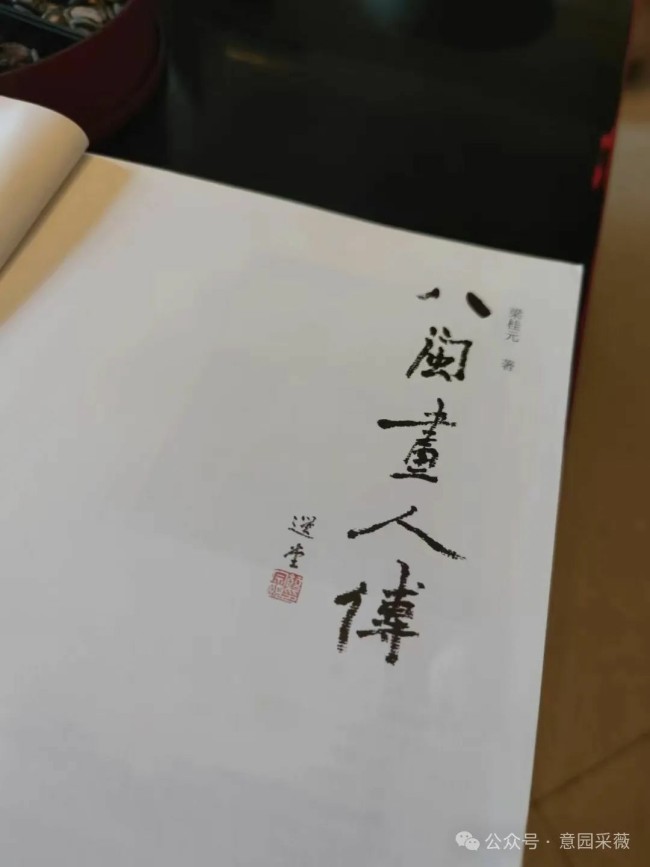 梁桂元 著
八闽畫人傳
選堂
公众号 · 意园采薇